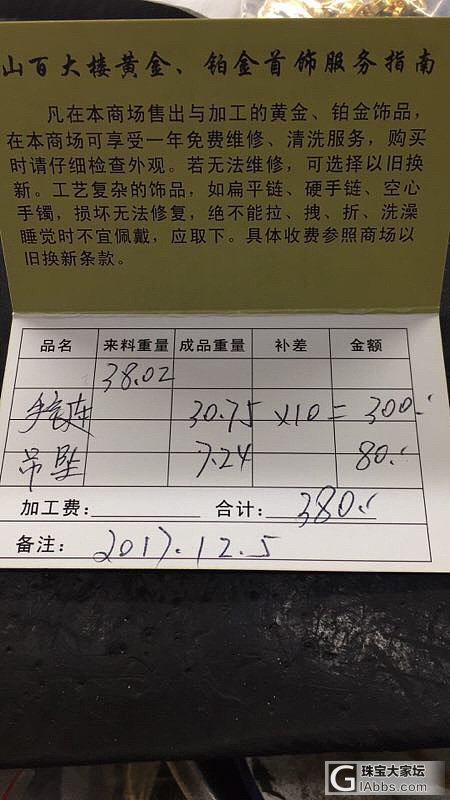 山百大楼黄金、铂金首饰服务指南
凡在本商场售出与加工的黄金、铂金饰品，
在本商场可享受一年免费维修、清洗服务，购买
时请仔细检查外观。若无法维修，可选择以旧换
新。工艺复杂的饰品，如扁平链、硬手链、空心
手镯，损坏无法修复，绝不能拉、拽、折、洗澡
睡觉时不宜佩戴，应取下。具体收费参照商场以
旧换新条款。
品名 来料重量 成品重量 补差 金额
38.02
30.75 ×10 = 300.
吊坠 7.24 80.
加工费： 合计： 380.
备注： 2017.12.5
珠宝大家坛
GIAbbs.com